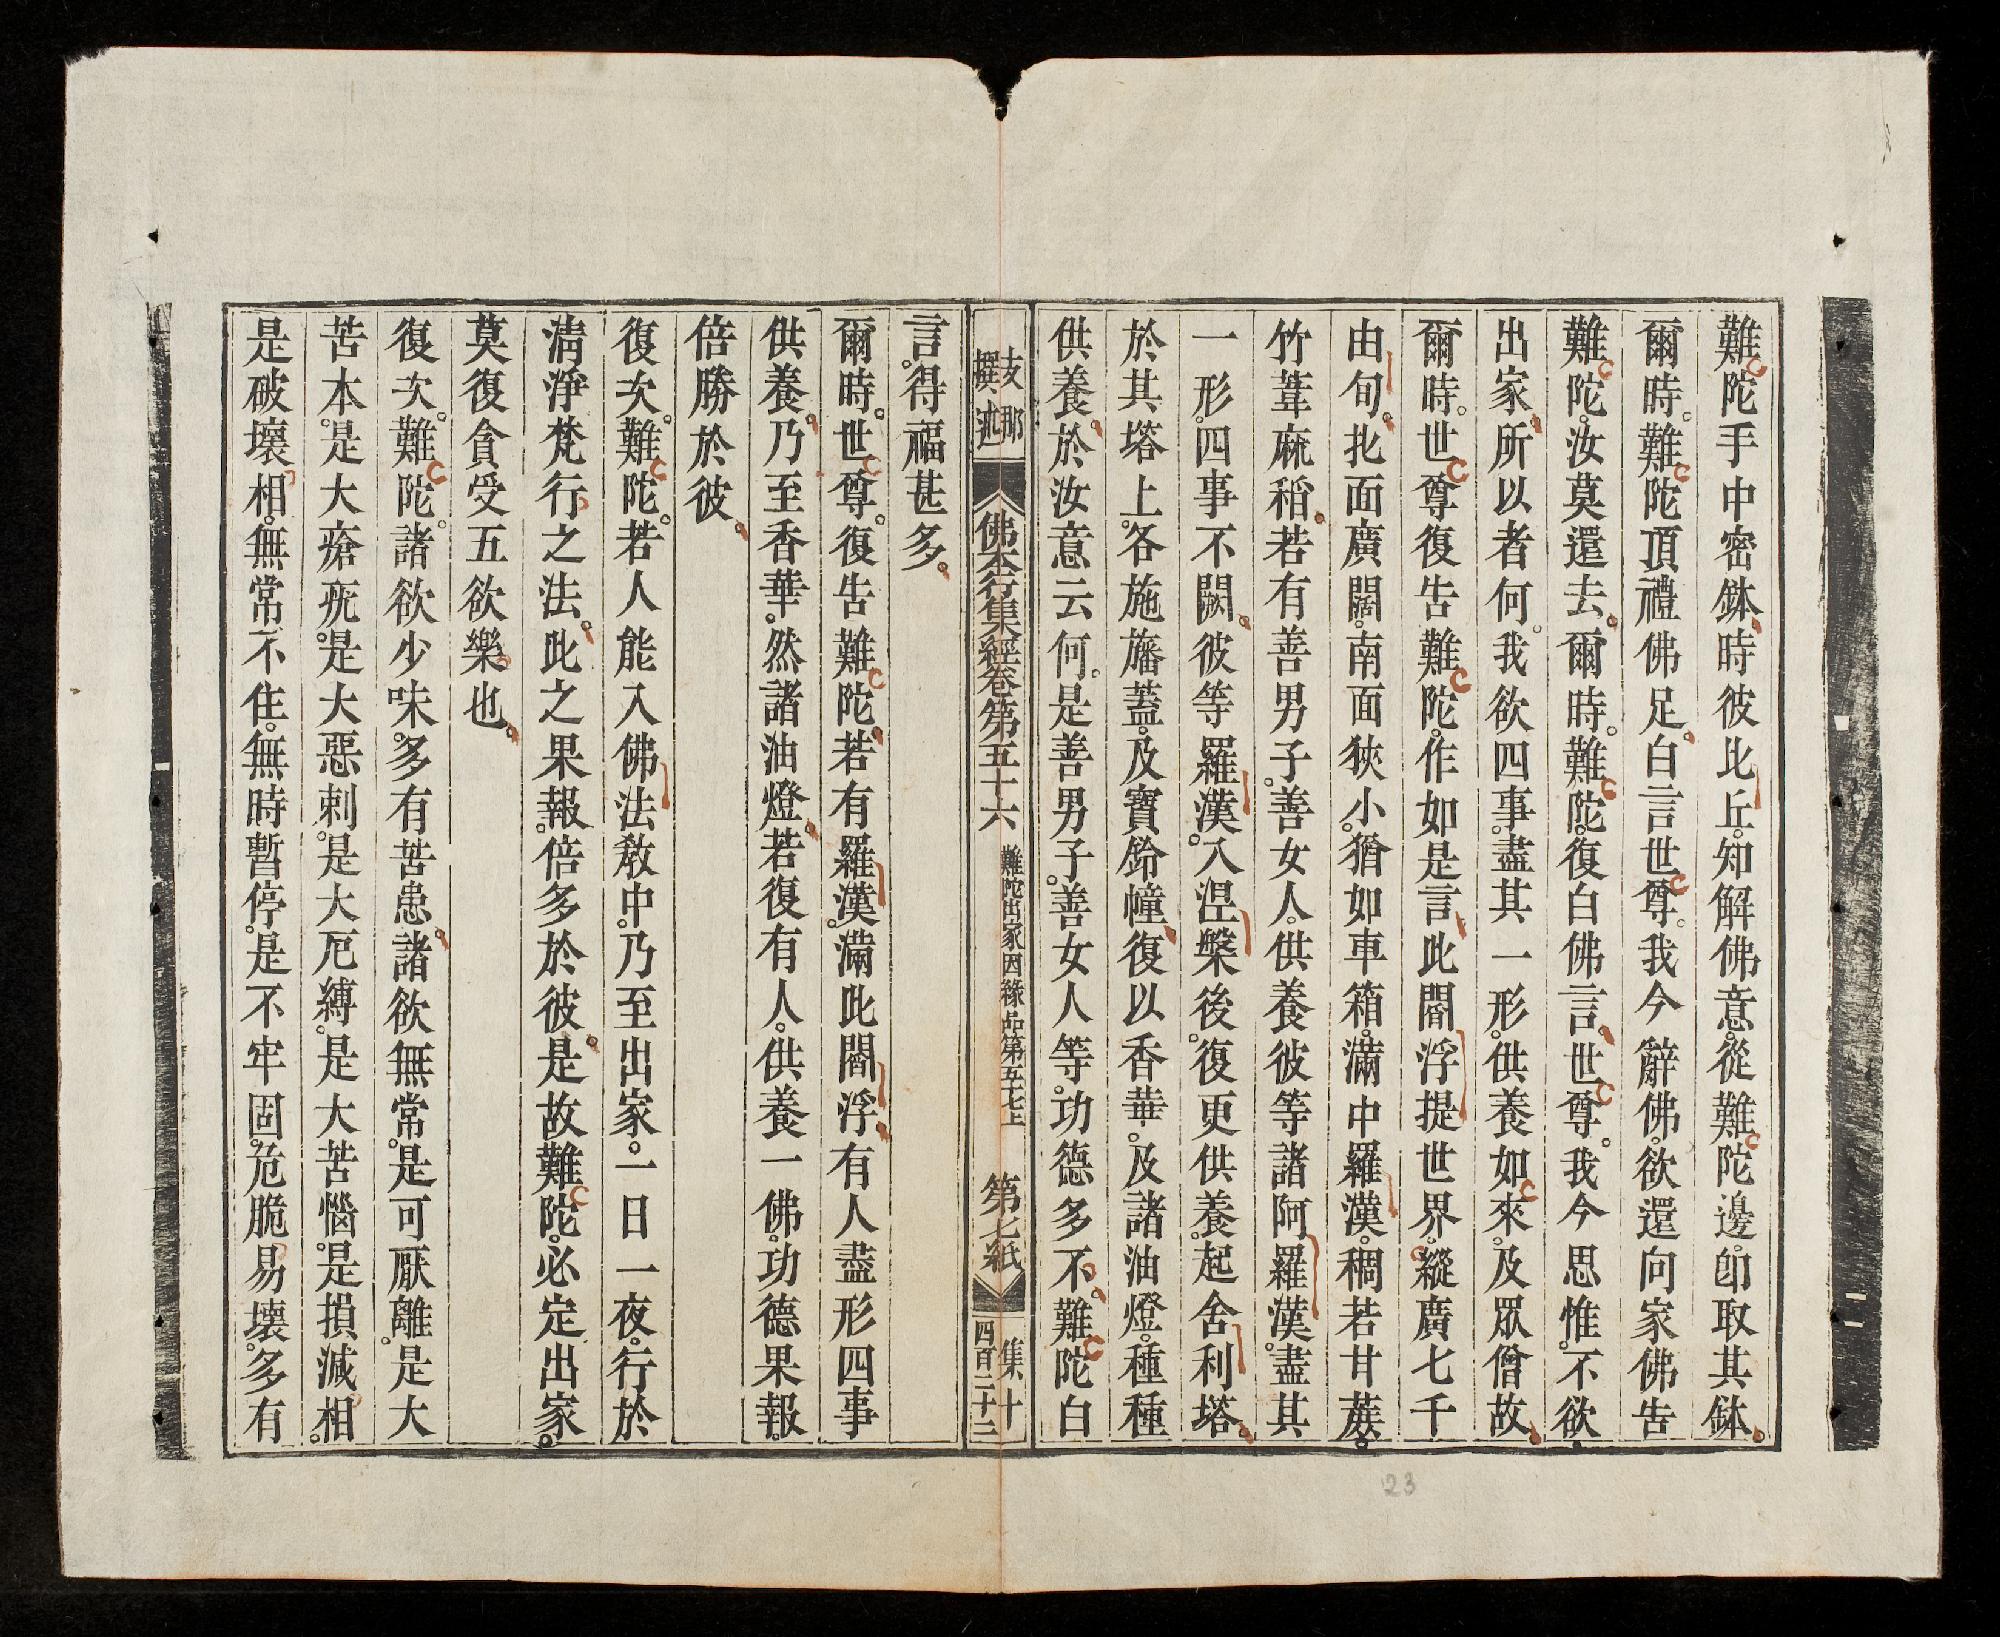 難陀手中密鉢、時彼比丘。知解佛意。從難陀邊。卽取其鉢。
爾時。難陀頂禮佛足。白言世尊。我今辭佛。欲還向家佛告
難陀。汝莫還去。爾時。難陀。復白佛言。世尊。我今思惟。不欲
出家。所以者何。我欲四事。盡其一形。供養如來。及眾僧故。
爾時。世尊復告難陀。作如是言。此閻浮提世界。縱廣七千
由旬。北面廣闊。南面狹小。猶如車箱。滿中羅漢。稠若甘蔗。
竹葦麻稻。若有善男子。善女人。供養彼等諸阿羅漢。盡其
一形。四事不闕。彼等羅漢。入涅槃後。復更供養。起舍利塔。
於其塔上。各施旛蓋。及寶鈴幢。復以香華。及諸油燈。種種
供養。於汝意云何。是善男子。善女人等。功德多不。難陀白
支那
撰述
佛本行集經卷第五十六 難陀出家因緣品第五十七上 第七紙
集十
四百二十三
言。得福甚多。
爾時。世尊。復告難陀。若有羅漢。滿此閻浮。有人盡形四事
供養。乃至香華。然諸油燈。若復有人。供養一佛。功德果報。
倍勝於彼。
復次。難陀。若人能入佛法敎中。乃至出家。一日一夜。行於
淸淨梵行之法。此之果報。倍多於彼。是故難陀。必定出家。
莫復貪受五欲樂也。
復次。難陀。諸欲少味。多有苦患。諸欲無常。是可厭離。是大
苦本。是大瘡疣。是大惡刺。是大厄縛。是大苦惱。是損減相。
是破壞相。無常不住。無時暫停。是不牢固。危脆易壞。多有
23